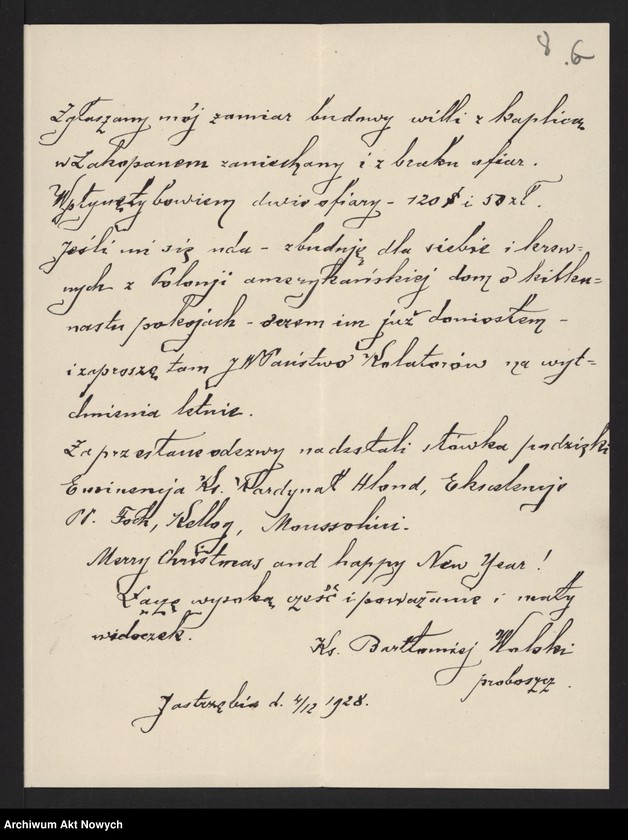 8 . 6
Zgłaszany mój zamiar budowy willi z kaplicą
w Zakopanem zaniechany i z braku ofiar.
Wpłynęły bowiem dwie ofiary - 120 $ i 50 zł.
Jeśli mi się uda - zbuduję dla siebie i krew=
nych z Polonji amerykańskiej dom o kilku=
nastu pokojach - o czem im już doniosłem -
i zaproszę tam JWPaństwo Kolatorów na wyt=
chnienia letnie.
Za przesłane odezwy nadesłali słówka podzięki
Eminencja Ks. Kardynał Hlond, Ekscelencje
PP. Foch, Kellog, Moussolini.
Merry Christmas and happy New Year!
Łączę wysoką cześć i poważanie i mały
widoczek.
Ks. Bartłomiej Wolski
proboszcz.
Jastrzębia d. 4/12 1928.
Archiwum Akt Nowych